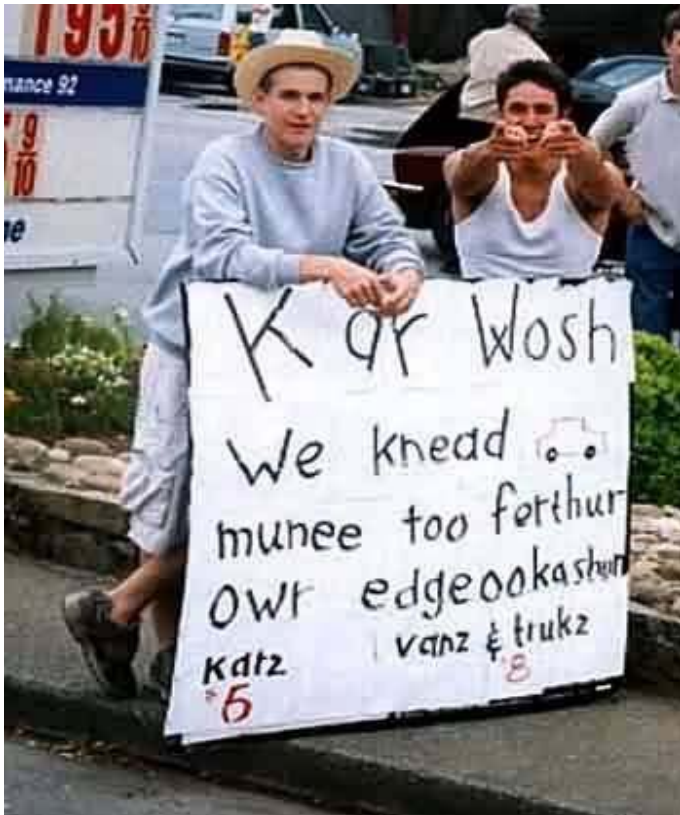 195 9/10
mance 92
9/10
Kar Wosh
We knead
munee too ferthur
owr edgeookashun
Karz vanz & trukz
$5 $8